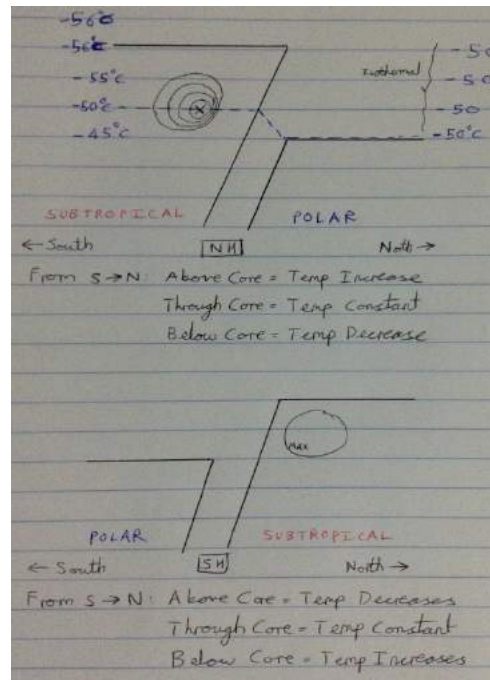 -56°c
-56°c - 50
-55°c Isothermal - 50
-50°c X - 50
-45°c - 50°c
SUBTROPICAL POLAR
← South NH North →
From S → N: Above Core = Temp Increase
Through Core = Temp Constant
Below Core = Temp Decrease
MAX
POLAR SUBTROPICAL
← South SH North →
From S → N: Above Core = Temp Decreases
Through Core = Temp Constant
Below Core = Temp Increases